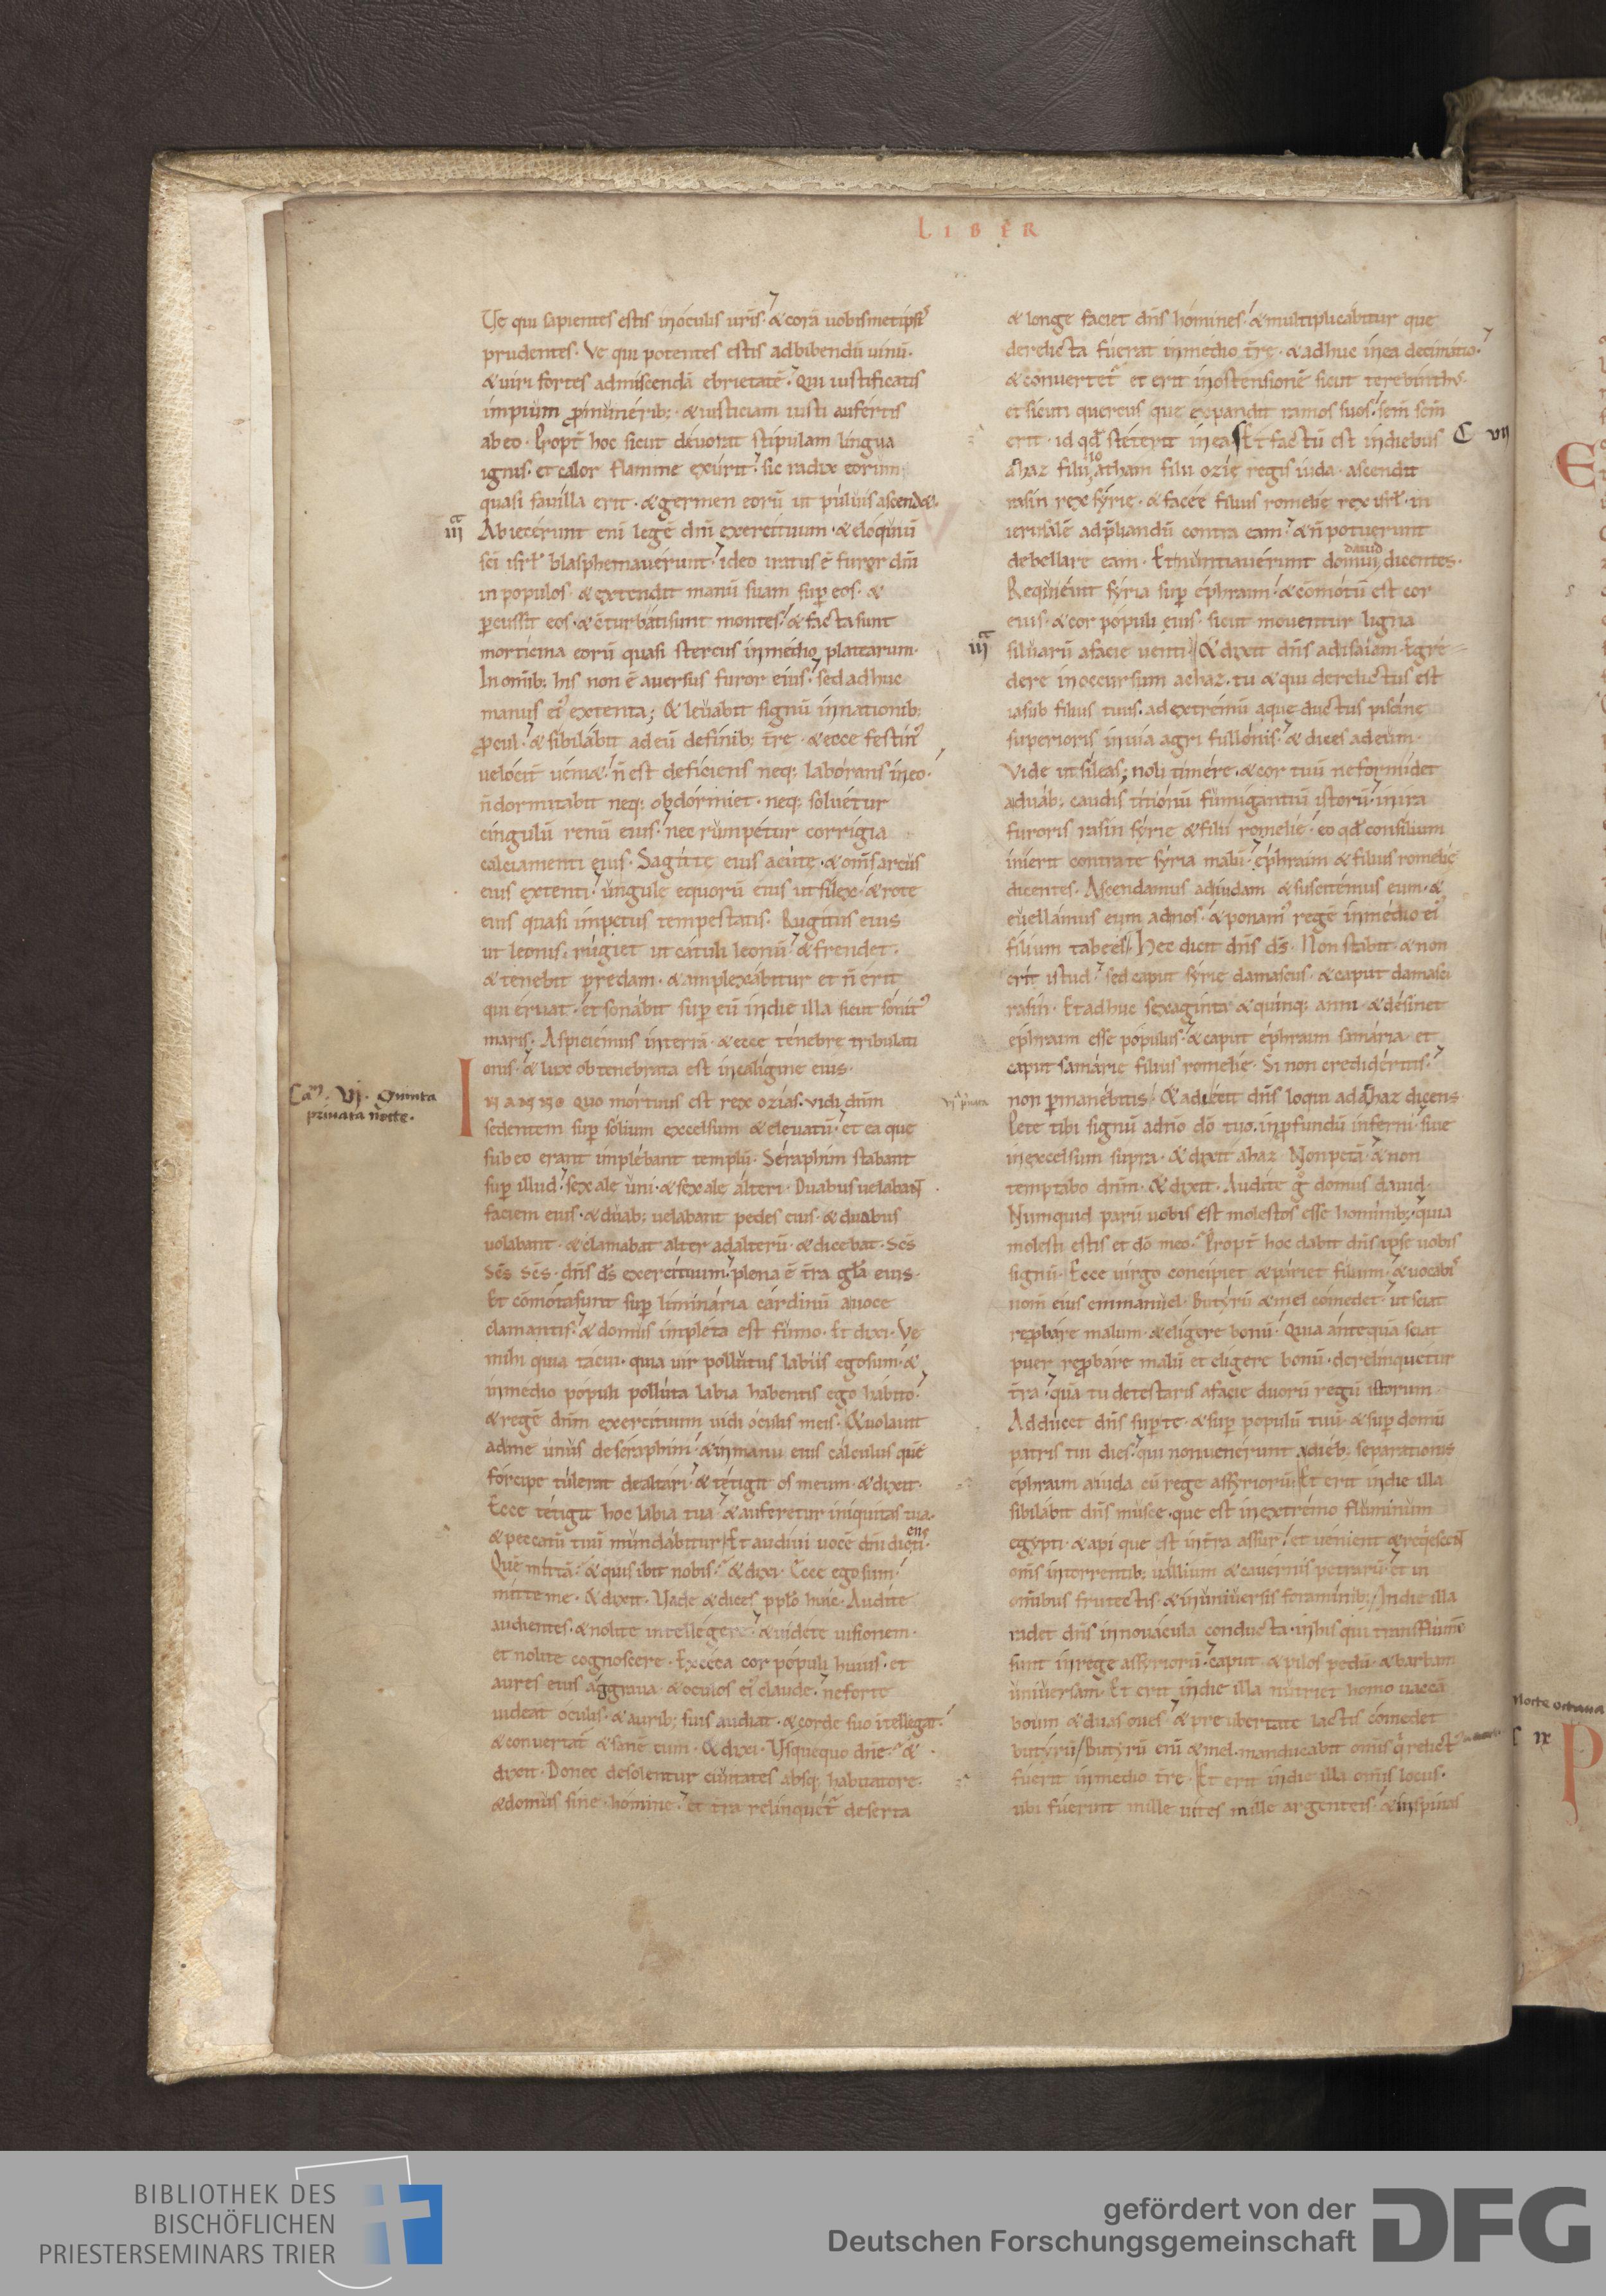 LIBER
Ve qui sapientes estis inoculis uris · & corā uobismetipsis
prudentes · Ve qui potentes estis adbibendū uinū ·
& uiri fortes admiscendā ebrietatē · Qui iustificatis
impium p munerib; · & iusticiam iusti aufertis
abeo · Propt hoc sicut deuorat stipulam lingua
ignis · et calor flamme exurit · sic radix eorum
quasi fauilla erit · & germen eorū ut puluis ascend&·
iij Abiecerunt eni legē dnī exercituum · & eloquiū
sci isrl blasphemauerunt · ideo iratus ē furor dnī
in populos · & extendit manū suam sup eos · &
pcussit eos · & cturbati sunt montes · & facta sunt
morticina eorū quasi stercus inmedio platearum ·
In omib; his non ē auersus furor eius · sed adhuc
manus ei extenta; & leuabit signū innationib;
procul · & sibilabit ad eū definib; tre · & ecce festin
uelocit ueni& · n est deficiens neq; laborans ineo ·
n dormitabit neq; obdormiet · neq; soluetur
cingulū renū eius · nec rumpetur corrigia
calciamenti eius · Sagitte eius acute · & oms arcus
eius extenti · ungule equorū eius ut silex · & rote
eius quasi impetus tempestatis · Rugitus eius
ut leonis · rugiet ut catuli leonū · & frendet ·
& tenebit predam · & amplexabitur et n erit
qui eruat · et sonabit sup eū indie illa sicut sonit
maris · Aspiciemus interrā · & ecce tenebre tribulati
onis · & lux obtenebrata est incaligine eius ·
Ca. VI. Quinta
priuata nocte.
IN ANNO quo mortuus est rex ozias · uidi dnm
sedentem sup solium excelsum & eleuatū · et ea que
sub eo erant implebant templū · Seraphim stabant
sup illud · sex ale uni · & sex ale alteri · Duabus uelabant
faciem eius · & duab; uelabant pedes eius · & duabus
uolabant · & clamabat alter adalterū · & dicebat · Scs
Scs Scs · dns ds exercituum · plena ē tra gla eius ·
Et cōmota sunt sup liminaria cardinū auoce
clamantis · & domus impleta est fumo · Et dixi · Ve
mihi quia tacui · quia uir pollutus labiis ego sum · &
inmedio populi polluta labia habentis ego habito ·
& regē dnm exercituum uidi oculis meis · & uolauit
adme unus de seraphim · & inmanu eius calculus quē
forcipe tulerat dealtari · & tetigit os meum · & dixit ·
Ecce tetigit hoc labia tua · & auferetur iniquitas tua ·
& peccatū tuū mundabitur Et audiui uocē dnī dicentis
Quē mittā · & quis ibit nobis · & dixi · Ecce ego sum
mitte me · & dixit · Vade & dices pplo huic · Audite
audientes · & nolite intellegere · & uidete uisionem ·
et nolite cognoscere · Exceca cor populi huius · et
aures eius aggraua · & oculos ei claude · neforte
uideat oculis · & aurib; suis audiat · & corde suo ītellegat ·
& conuertat & sanē eum · & dixi · Vsquequo dne · &
dixit · Donec desolentur ciuitates absq; habitatore ·
& domus sine homine · et tra relinquet deserta
& longe faciet dns homines · & multiplicabitur que
derelicta fuerat inmedio tre · & adhuc inea decimatio ·
& conuertet et erit inostensionē sicut terebinthus
et sicuti quercus que expandit ramos suos · sem scm
erit · id qd steterit inea Et factū est indiebus
C VII
ahaz filii ioatham filii ozie regis iuda · ascendit
rasin rex syrie · & facee filius romelie rex isrl · in
ierusalē adphandū contra eam · & n potuerunt
debellare eam · Et nuntiauerunt domui dauid dicentes ·
Requieuit syria sup ephraim · & cōmotū est cor
eius · & cor populi eius · sicut mouentur ligna
iiij siluarū afacie uenti & dixit dns adisaiam · Egre
dere inoccursum achaz · tu & qui derelictus est
iasub filius tuus · adextremū aque ductus piscine
superioris inuia agri fullonis · & dices adeum ·
Vide ut sileas; noli timere · & cor tuū neformidet
aduab; caudis titionū fumigantiū istorū · inira
furoris rasin syrie & filii romelie · eo qd consilium
inierit contrate syria malū · ephraim & filius romelie
dicentes · Ascendamus adiudam & suscitemus eum · &
euellamus eum adnos · & ponam regē inmedio ei
filium tabeel Hec dicit dns ds · Non stabit · & non
erit istud · sed caput syrie damascus · & caput damasci
rasin · Et adhuc sexaginta & quinq; anni · & desinet
ephraim esse populus · & caput ephraim samaria · et
caput samarie filius romelie · Si non credideritis ·
non pmanebitis · & adiecit dns loqui adahaz dicens
Pete tibi signū adno dō tuo · inpfundū inferni · siue
inexcelsum supra · & dixit ahaz · Non petā · & non
temptabo dnm · & dixit · Audite g domus dauid ·
Numquid parū uobis est molestos esse hominib; · quia
molesti estis et dō meo · Propt hoc dabit dns ipse uobis
signū · Ecce uirgo concipiet & pariet filium · & uocabit
nom eius emmanuel · Butyrū & mel comedet · ut sciat
repbare malum · & eligere bonū · Quia antequā sciat
puer repbare malū et eligere bonū · derelinquetur
tra · quā tu detestaris afacie duorū regū istorum
Adducet dns supte · & sup populū tuū · & sup domū
patris tui dies · qui nonuenerunt adieb; separationis
ephraim aiuda cū rege assyriorū Et erit indie illa
sibilabit dns musce · que est inextremo fluminum
egypti · & api que est intra assur · et uenient & reqescent
oms intorrentib; uallium & cauernis petrarū · et in
omibus frutectis · & inuniuersis foraminib; / Indie illa
radet dns innouacula conducta · inhis qui transflumē
sunt inrege assyriorū · caput & pilos pedū · & barbam
uniuersam · Et erit indie illa nutriet homo uaccā
boum & duas oues · & pre ubertate lactis comedet
butyrū / Butyrū eni & mel manducabit omis q relict
fuerit inmedio tre · Et erit indie illa omis locus ·
ubi fuerint mille uites mille argenteis · & inspinas
Nocte octaua
BIBLIOTHEK DES
BISCHÖFLICHEN
PRIESTERSEMINARS TRIER
gefördert von der
Deutschen Forschungsgemeinschaft
DFG